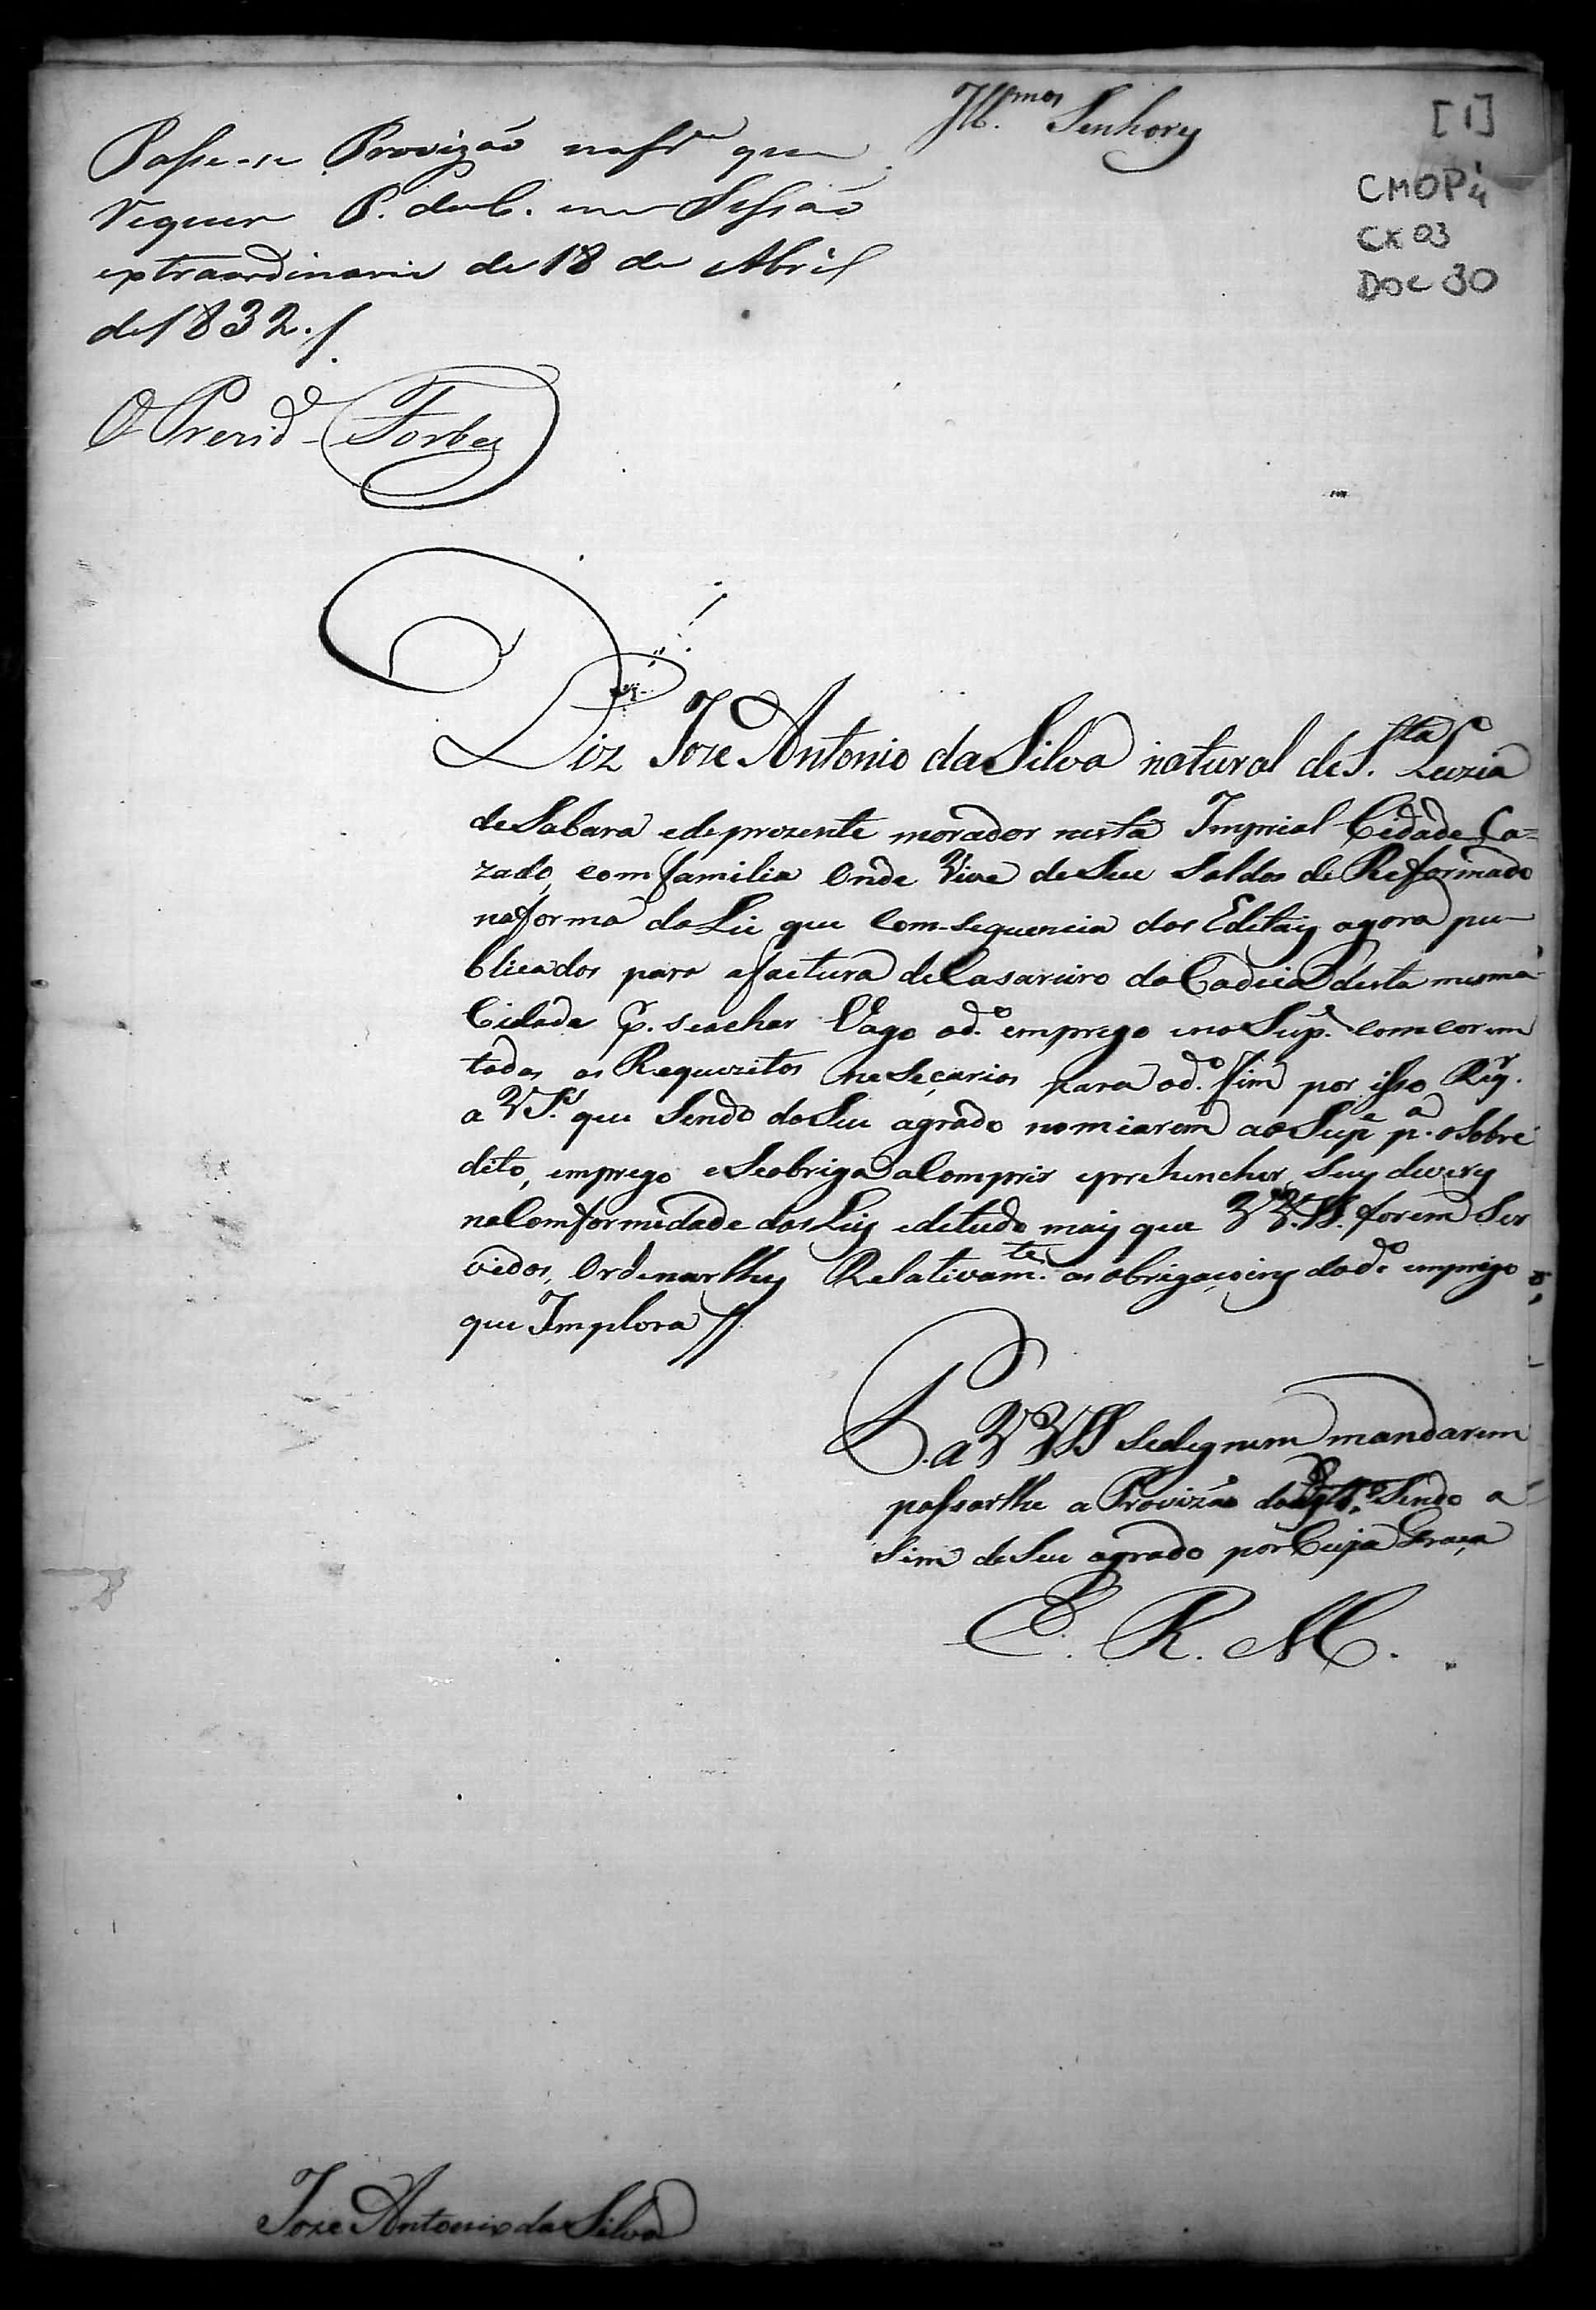 Ill.mos Senhores
[1]
CMOP
CX 03
DOC 30
Passe-se Provizão na fr.ma que
requer P. da C. em Sessão
extraordinaria de 18 de Abril
de 1832./.
O Prezid.e Forbes
Diz Joze Antonio da Silva natural de S.ta Luzia
de Sabara e de prezente morador nesta Imperial Cidade Ca=
zado, com familia onde Vive de Seu Soldos de Reformado
na forma da Lei que Com-sequencia dos Editais agora pu-
blicados para a factura de Casareiro da Cadeia desta mesma
Cidade p.r se achar Vago o d.o emprego e no Sup.e comcorem
todos os Requezitos neseçarios para o d.o fim por isso Req.r
a VS.s que Sendo do Seu agrado nomiarem ao Sup.e p.a o Sobre
dito, emprego e Se obriga a Comprir e prehencher Seus deveres
na Comformedade das Leis e de tudo mais que VV.SS. forem Ser
vedos, Ordenarlhes Relativam.te as obrigaçoins do d.o emprego
que Implora //
P. a VVSS Se degnem mandarem
passarlhe a Provizão do Sendo a
Sim de Seu agrado por Cuja Graça
E. R. M.
Joze Antonio da Silva